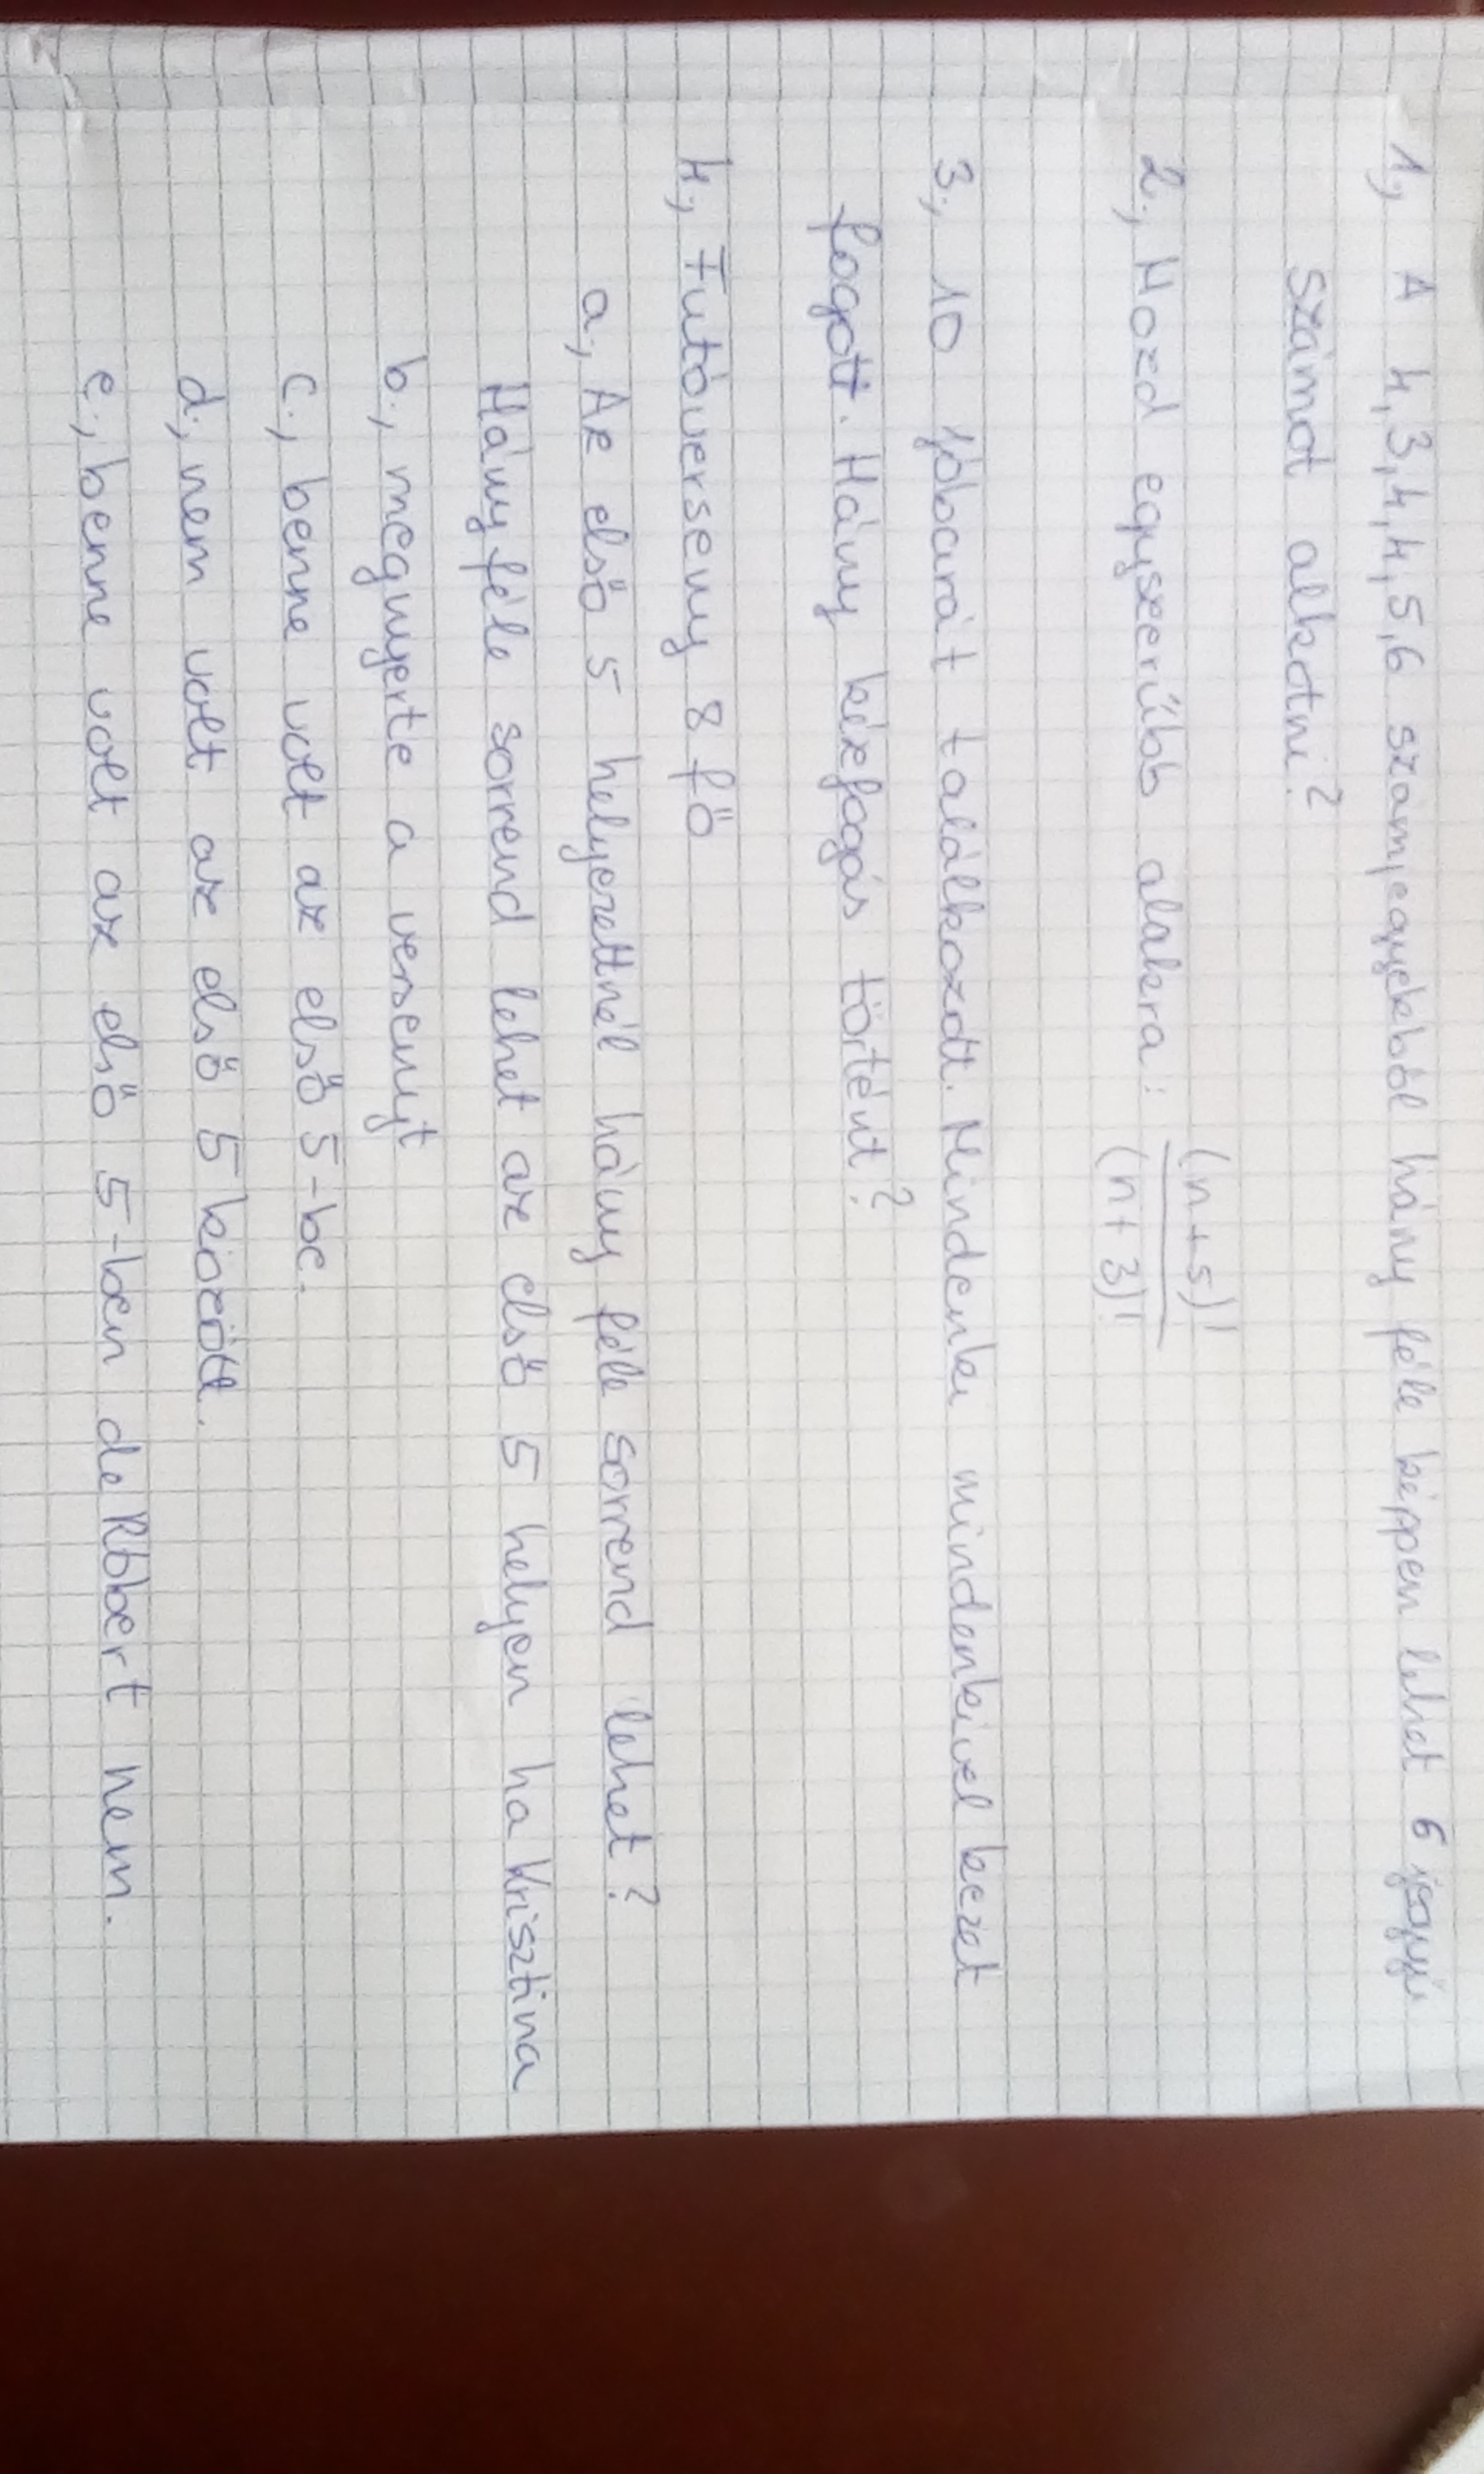 1, A 4,3,4,4,5,6 számjegyekből hány féle képpen lehet 6 jegyű
számot alkotni?
2., Hozd egyszerűbb alakra: (n+5)! / (n+3)!
3., 10 jóbarát találkozott. Mindenki mindenkivel kezet
fogott. Hány kézfogás történt?
4., Futóverseny 8 fő
a., Az első 5 helyezettnél hány féle sorrend lehet?
Hány féle sorrend lehet az első 5 helyen ha Krisztina
b., megnyerte a versenyt
c., benne volt az első 5-be.
d., nem volt az első 5 között.
e., benne volt az első 5-ben de Róbert nem.